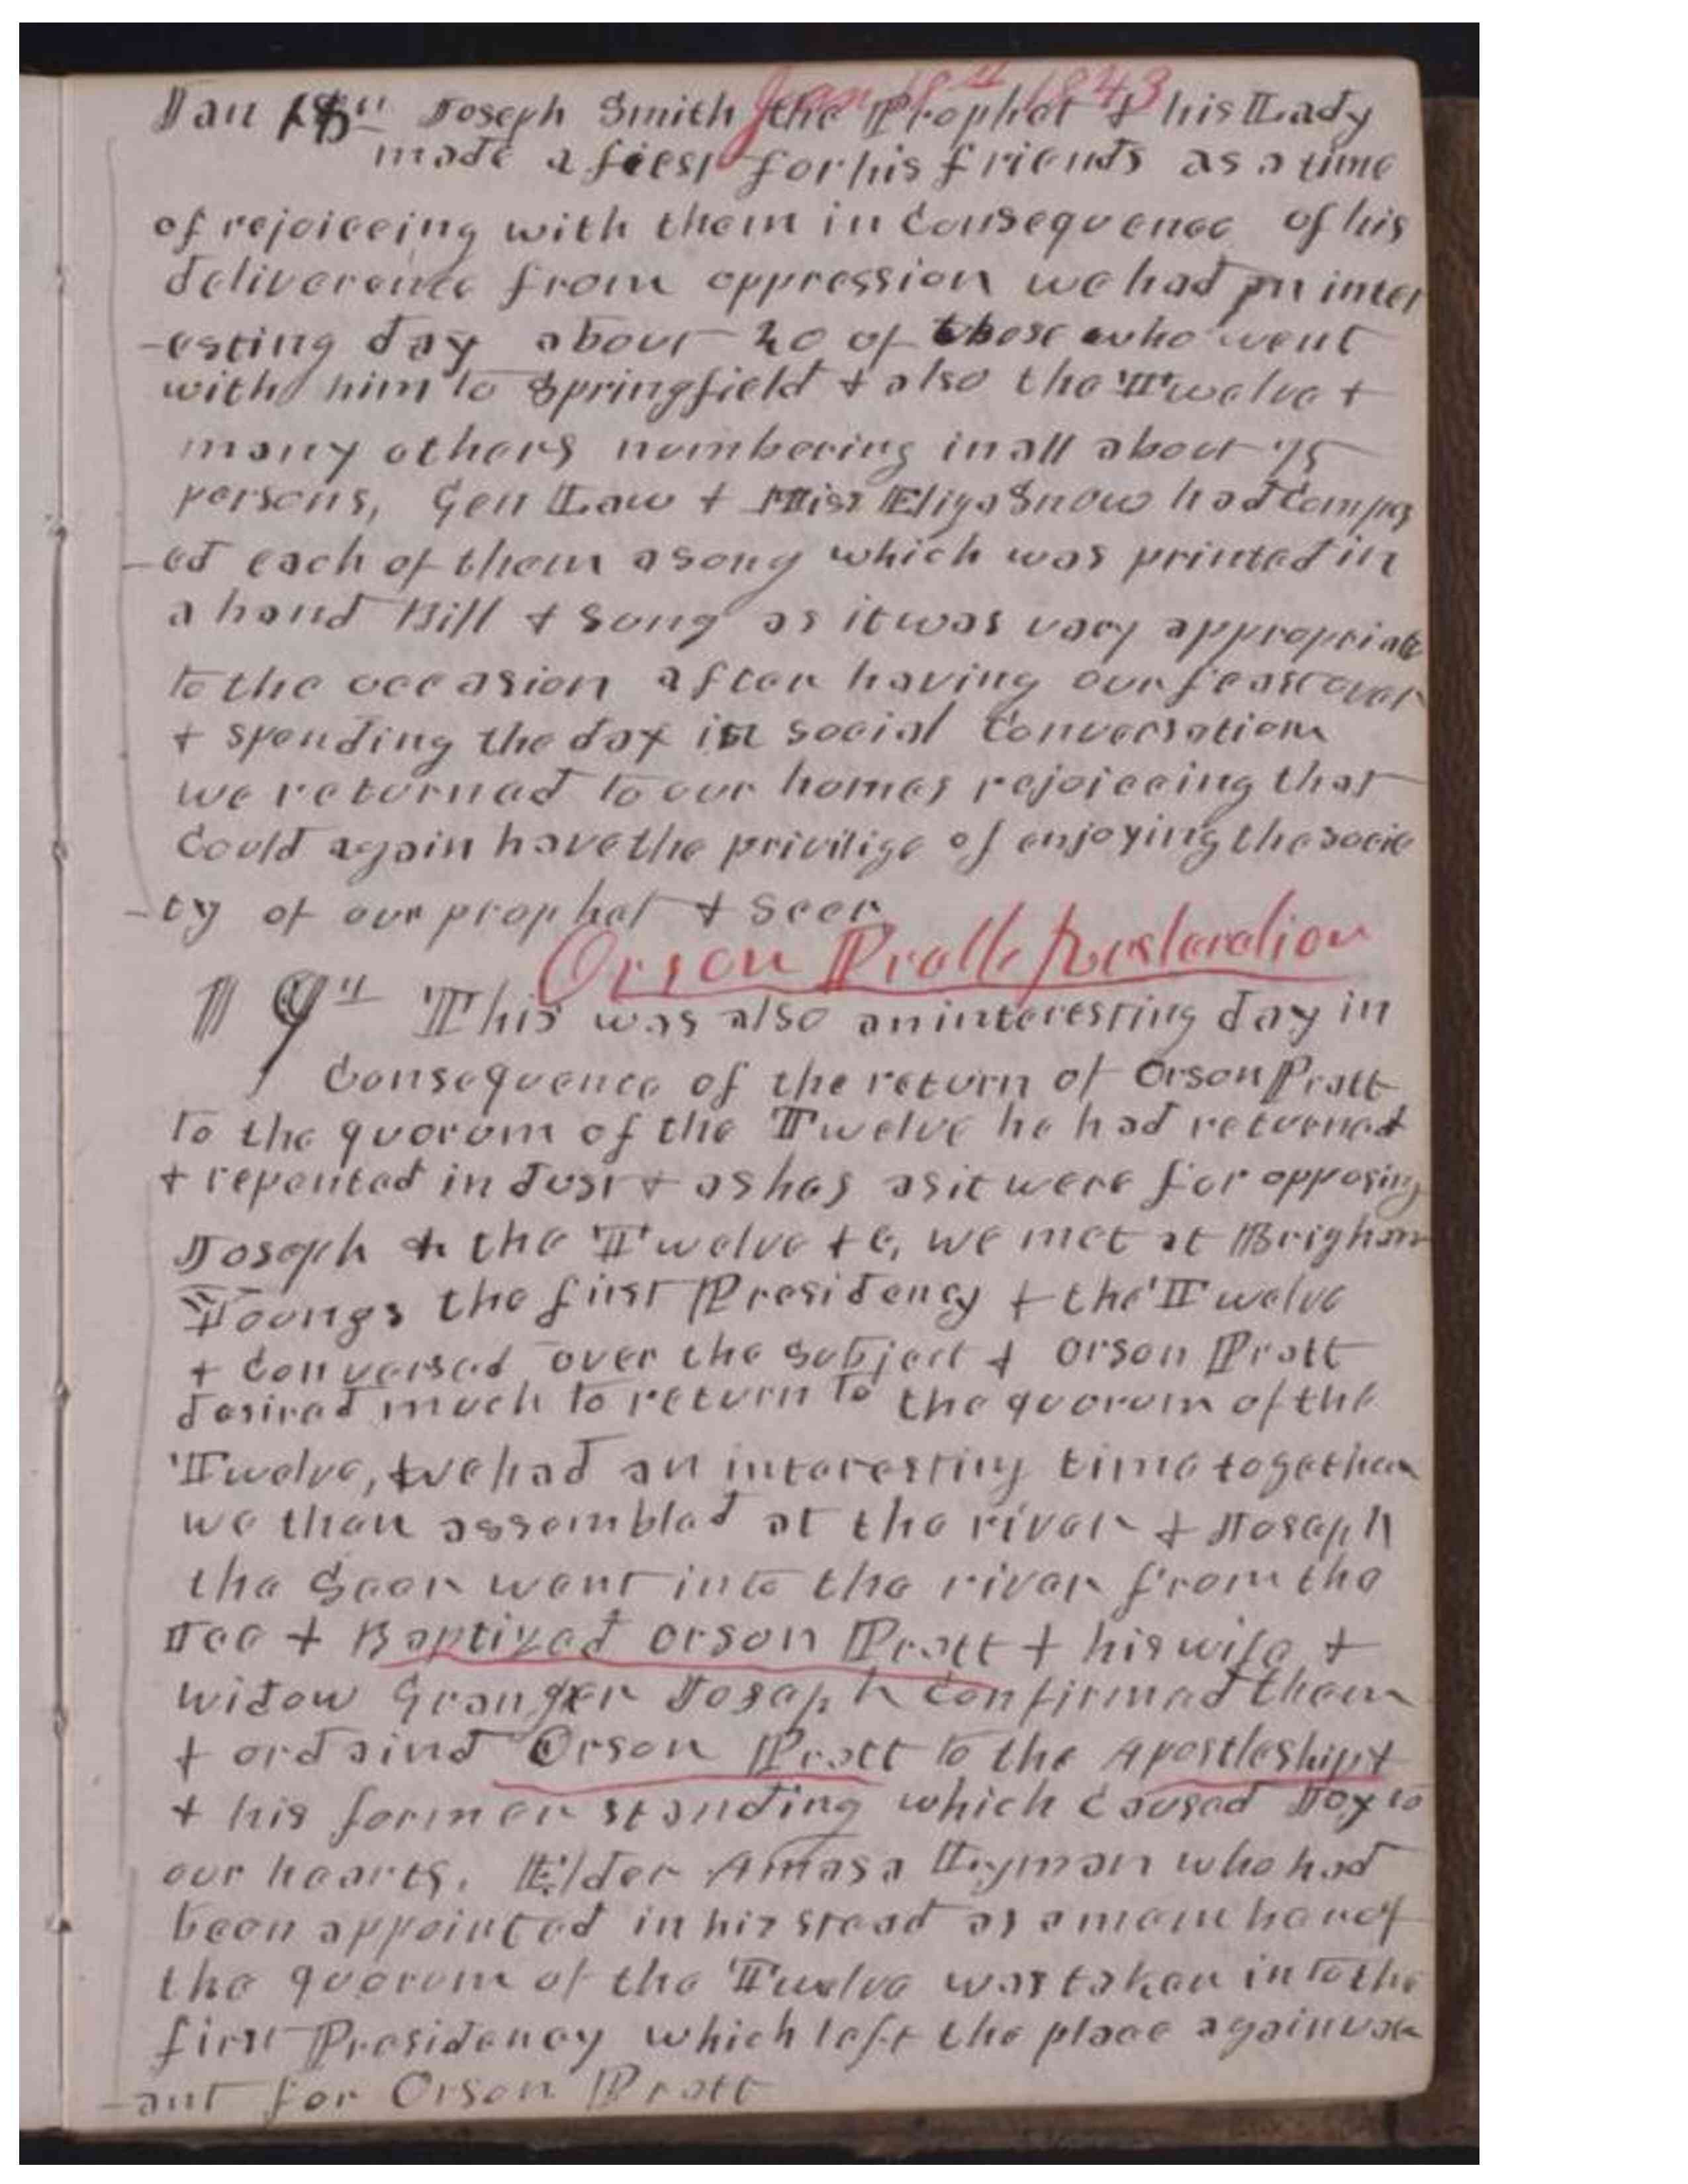 Jan 18th 1843
Jan 18th Joseph Smith the Prophet & his Lady
made a fiest for his friends as a time
of rejoiceing with them in Consequence of his
deliverence from oppression we had an inter
-esting day about 20 of those who went
with him to Springfield & also the Twelve &
many others numbering in all about 75
persons, Gen Law & Miss Eliza Snow had compos
-ed each of them a song which was printed in
a hand Bill & Sung as it was vary appropriate
to the occasion after having our feast over
& spending the day in social Conversation
we returned to our homes rejoiceing that
Could again have the privilige of enjoying the socie
-ty of our prophet & Seer
Orson Pratts restoration
19th This was also an interesting day in
Consequence of the return of Orson Pratt
to the quorum of the Twelve he had returned
& repented in dust & ashes as it were for opposing
Joseph & the Twelve &c, we met at Brigham
Youngs the first Presidency & the Twelve
& Conversed over the subject & Orson Pratt
desired much to return to the quorum of the
Twelve, we had an interesting time together
we then assembled at the river & Joseph
the Seer went into the river from the
Ice & Baptized Orson Pratt & his wife &
widow Granger Joseph Confirmed them
& ordaind Orson Pratt to the Apostleship &
& his former standing which Caused Joy to
our hearts. Elder Amasa Lyman who had
been appointed in his stead as a member of
the quorum of the Twelve was taken into the
first Presidency which left the place again vac
-ant for Orson Pratt